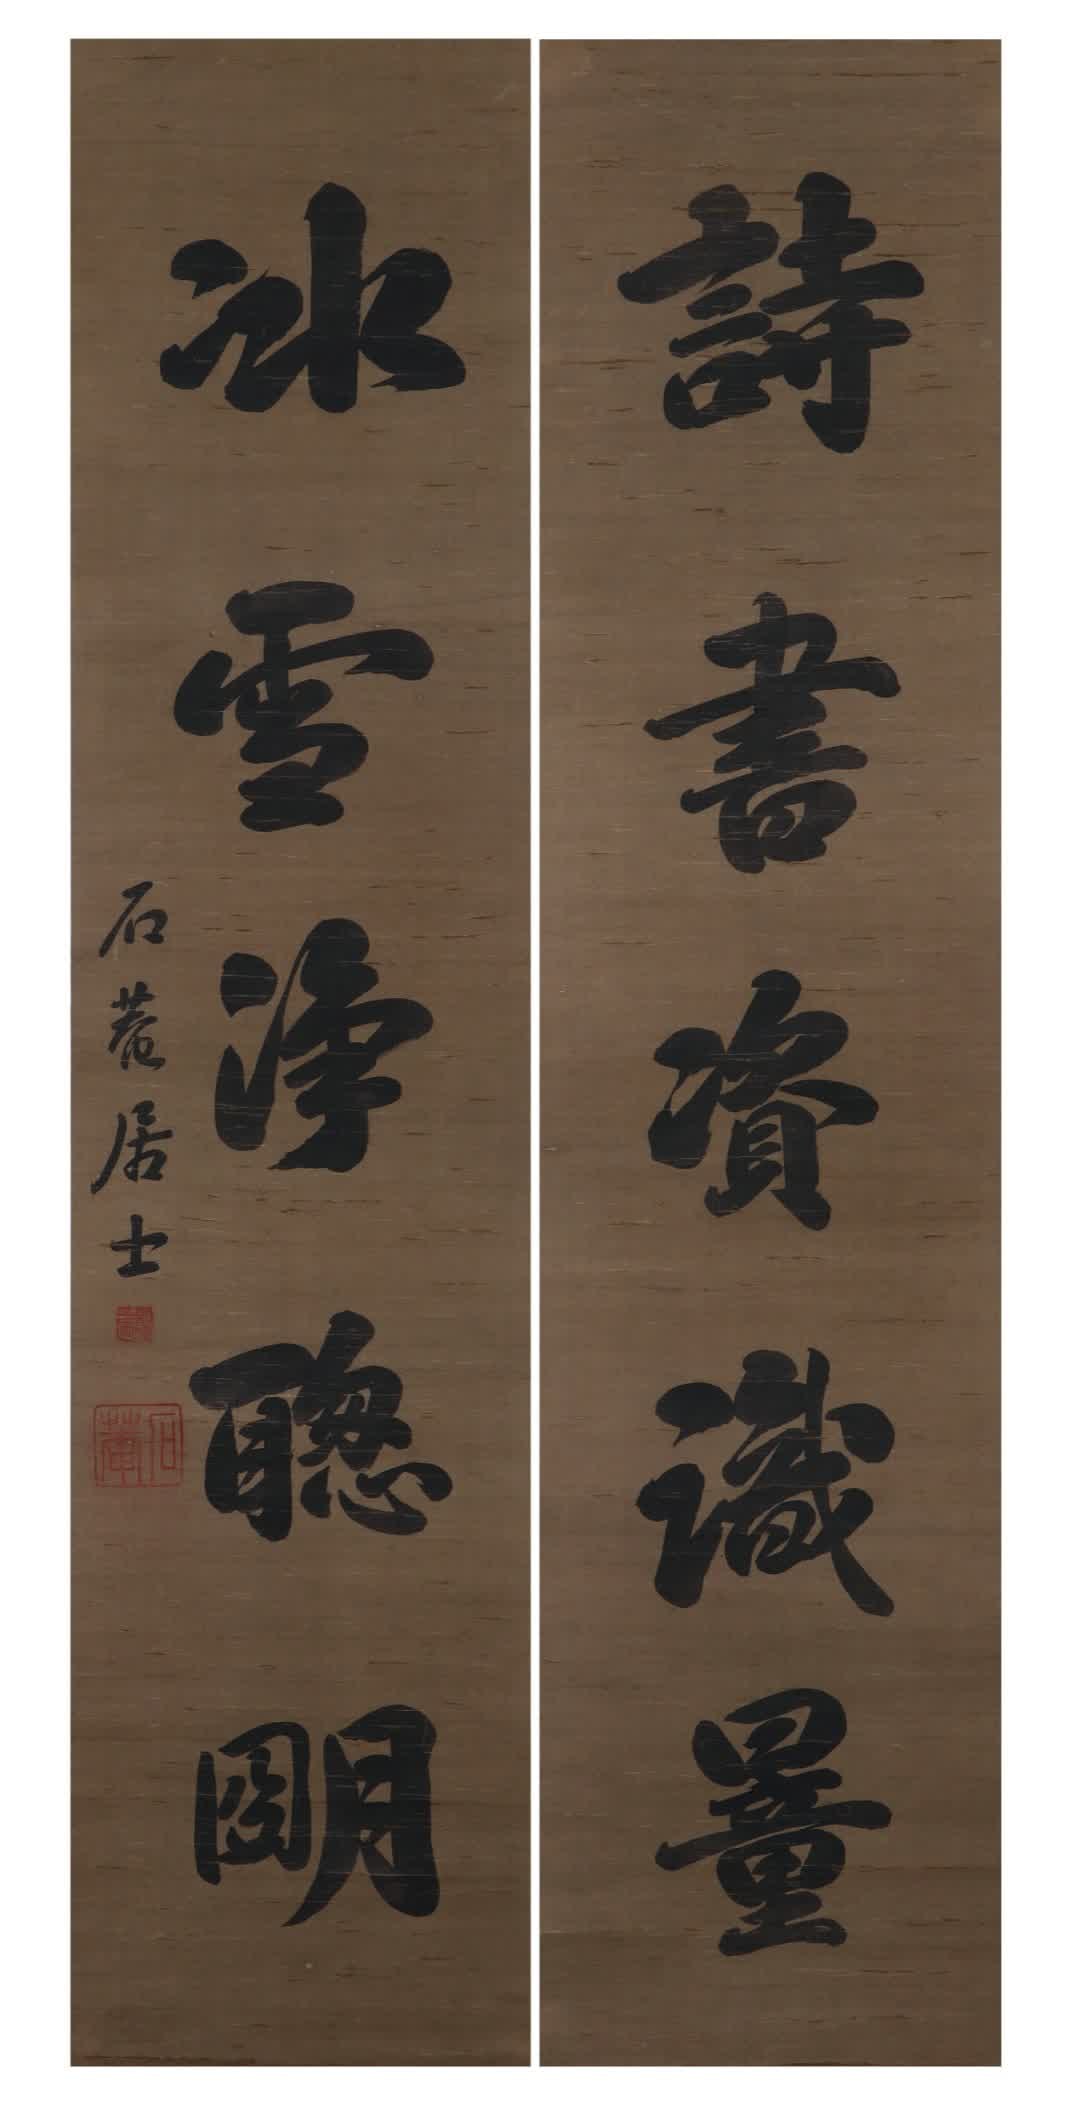 詩書資識量
冰雪淨聰明
石菴居士
石菴